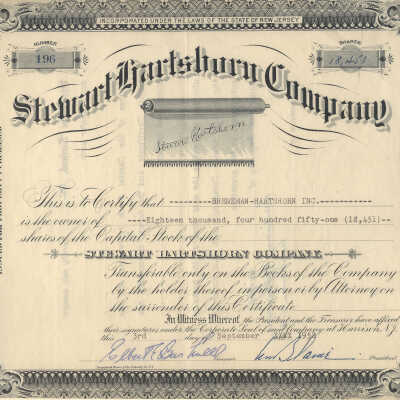 INCORPORATED UNDER THE LAWS OF THE STATE OF NEW JERSEY
NUMBER
196
SHARES
18,451
Stewart Hartshorn Company
Stewart Hartshorn
This is to Certify that --------BRENEMAN-HARTSHORN INC.--------
is the owner of ----Eighteen thousand, four hundred fifty-one (18,451)--
shares of the Capital Stock of the
STEWART HARTSHORN COMPANY
Transferable only on the Books of the Company
by the holder thereof in person or by Attorney on
the surrender of this Certificate.
In Witness Whereof, the President and the Treasurer have affixed
their signatures under the Corporate Seal of said Company at Harrison, N.J.
this 3rd day of September
President